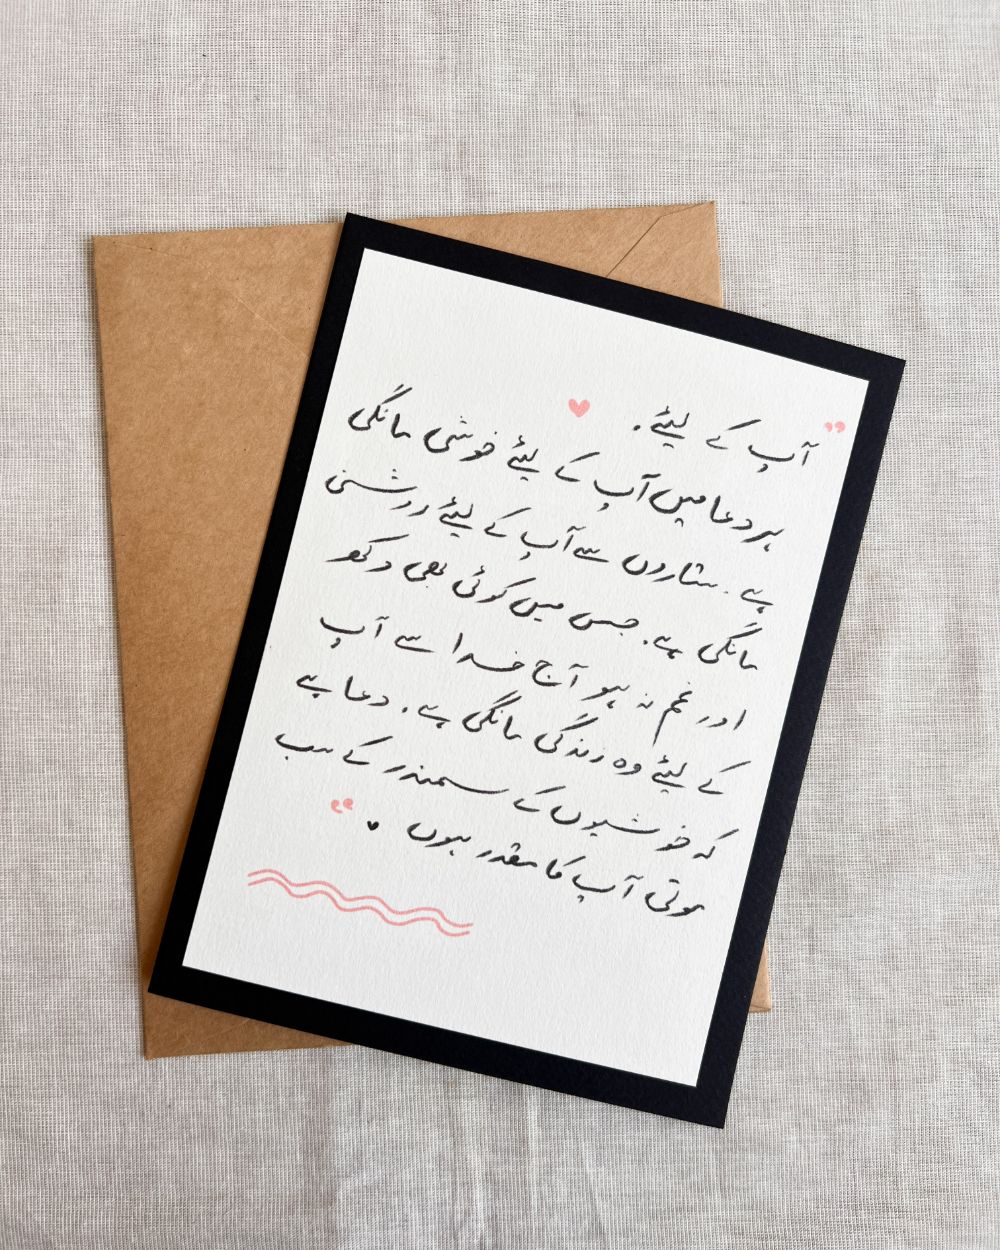 آپ کے لیئے.
ہر دعا میں آپ کے لیئے خوشی مانگی
ہے. ستاروں سے آپ کے لیئے روشنی
مانگی ہے. جس میں کوئی بھی دکھ
اور غم نہ ہو آج خدا سے آپ
کے لیئے وہ زندگی مانگی ہے. دعا ہے
کہ خوشیوں کے سمندر کے سب
موتی آپ کا مقدر ہوں